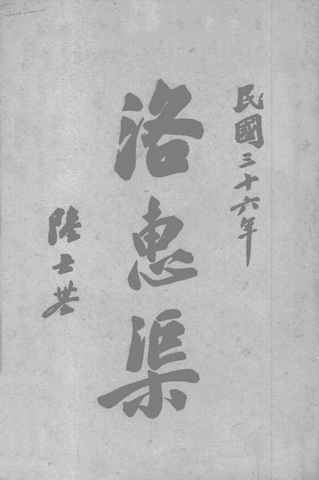 民國三十六年
洛惠渠
陸士基